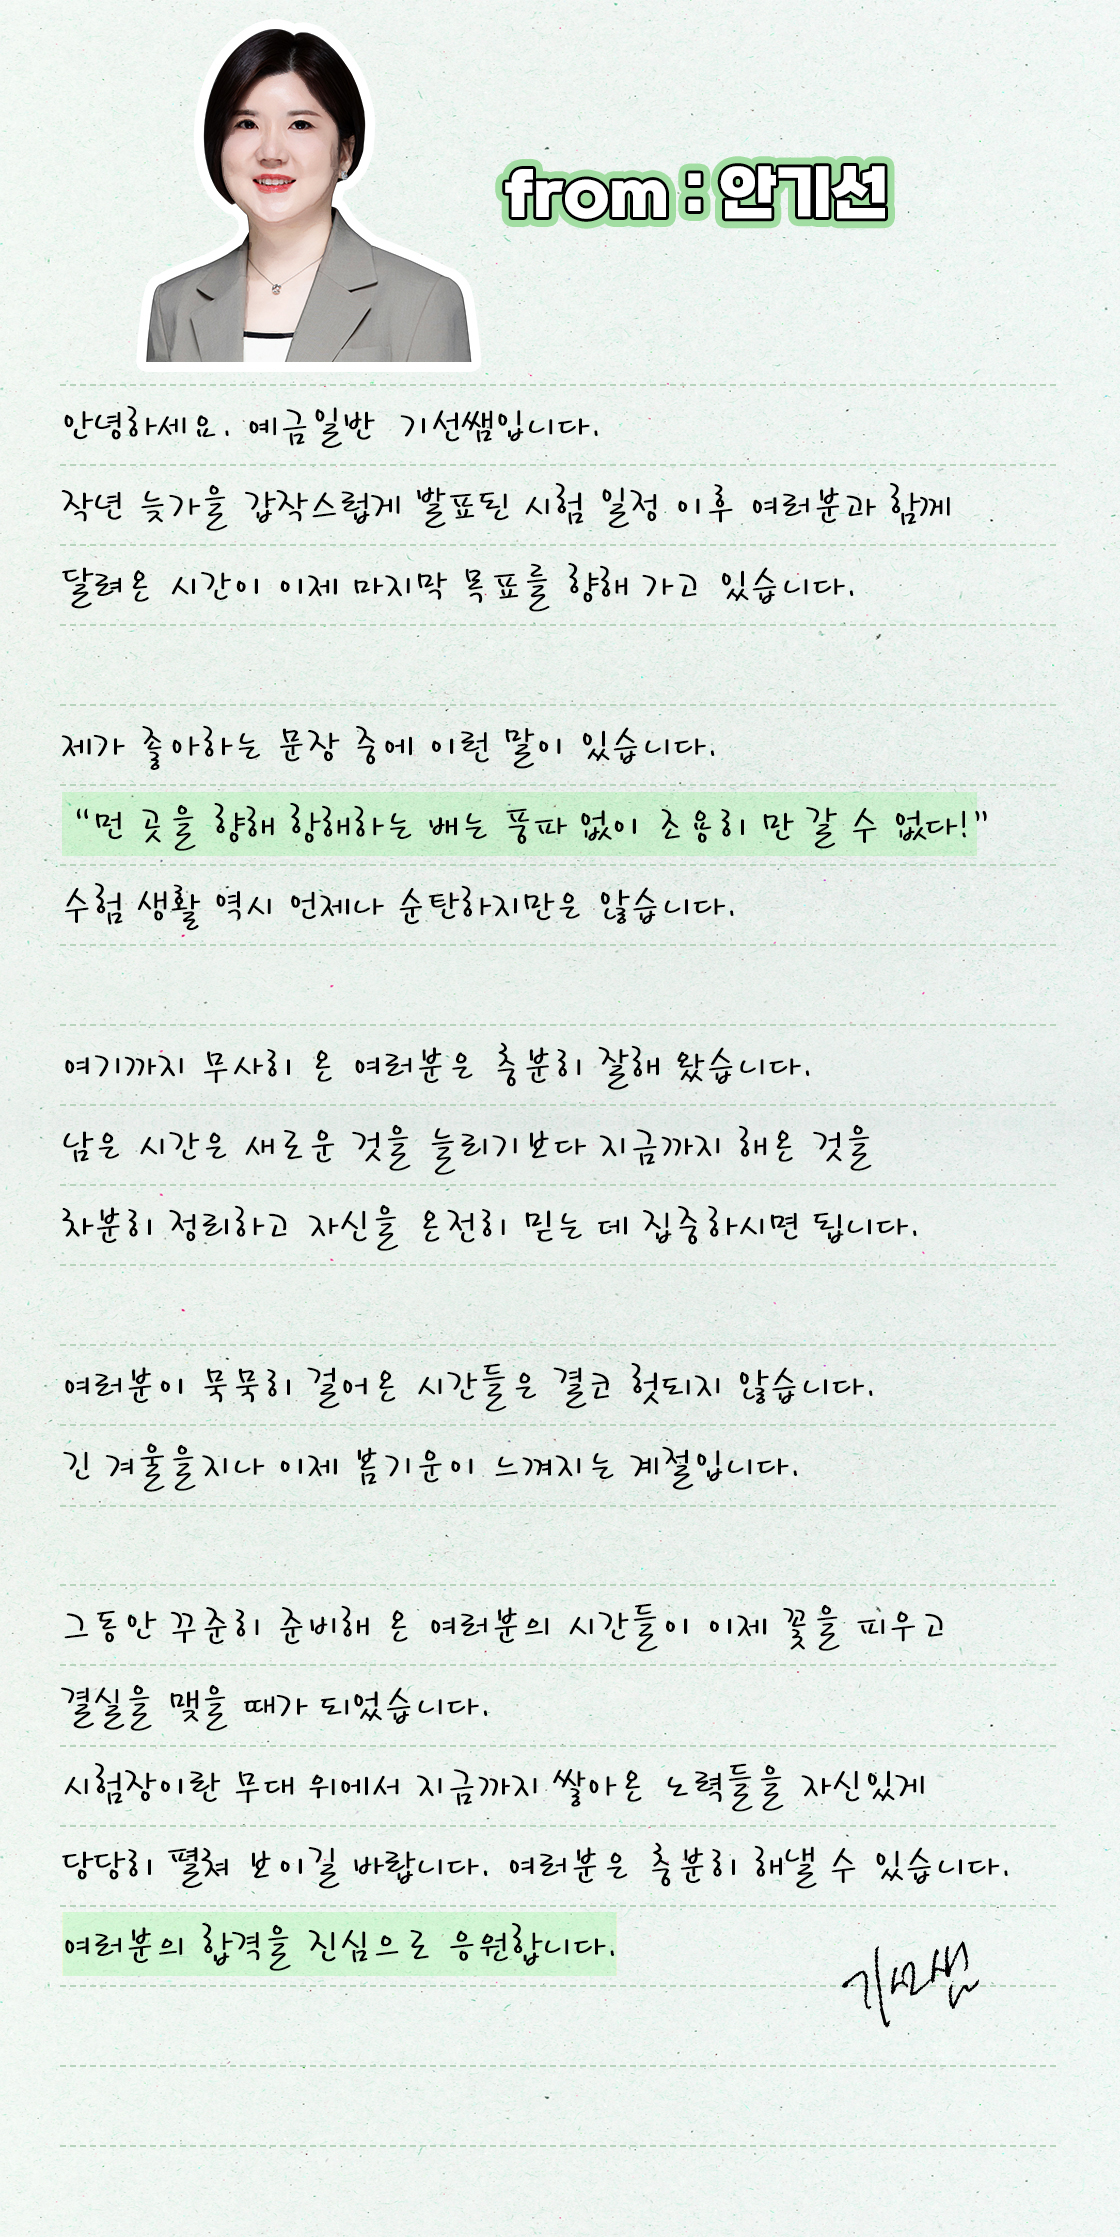 from : 안기선
안녕하세요. 예금일반 기선쌤입니다.
작년 늦가을 갑작스럽게 발표된 시험 일정 이후 여러분과 함께
달려온 시간이 이제 마지막 목표를 향해 가고 있습니다.
제가 좋아하는 문장 중에 이런 말이 있습니다.
“먼 곳을 향해 항해하는 배는 풍파 없이 조용히 만 갈 수 없다!”
수험 생활 역시 언제나 순탄하지만은 않습니다.
여기까지 무사히 온 여러분은 충분히 잘해 왔습니다.
남은 시간은 새로운 것을 늘리기보다 지금까지 해온 것을
차분히 정리하고 자신을 온전히 믿는 데 집중하시면 됩니다.
여러분이 묵묵히 걸어온 시간들은 결코 헛되지 않습니다.
긴 겨울을지나 이제 봄기운이 느껴지는 계절입니다.
그동안 꾸준히 준비해 온 여러분의 시간들이 이제 꽃을 피우고
결실을 맺을 때가 되었습니다.
시험장이란 무대 위에서 지금까지 쌓아온 노력들을 자신있게
당당히 펼쳐 보이길 바랍니다. 여러분은 충분히 해낼 수 있습니다.
여러분의 합격을 진심으로 응원합니다.